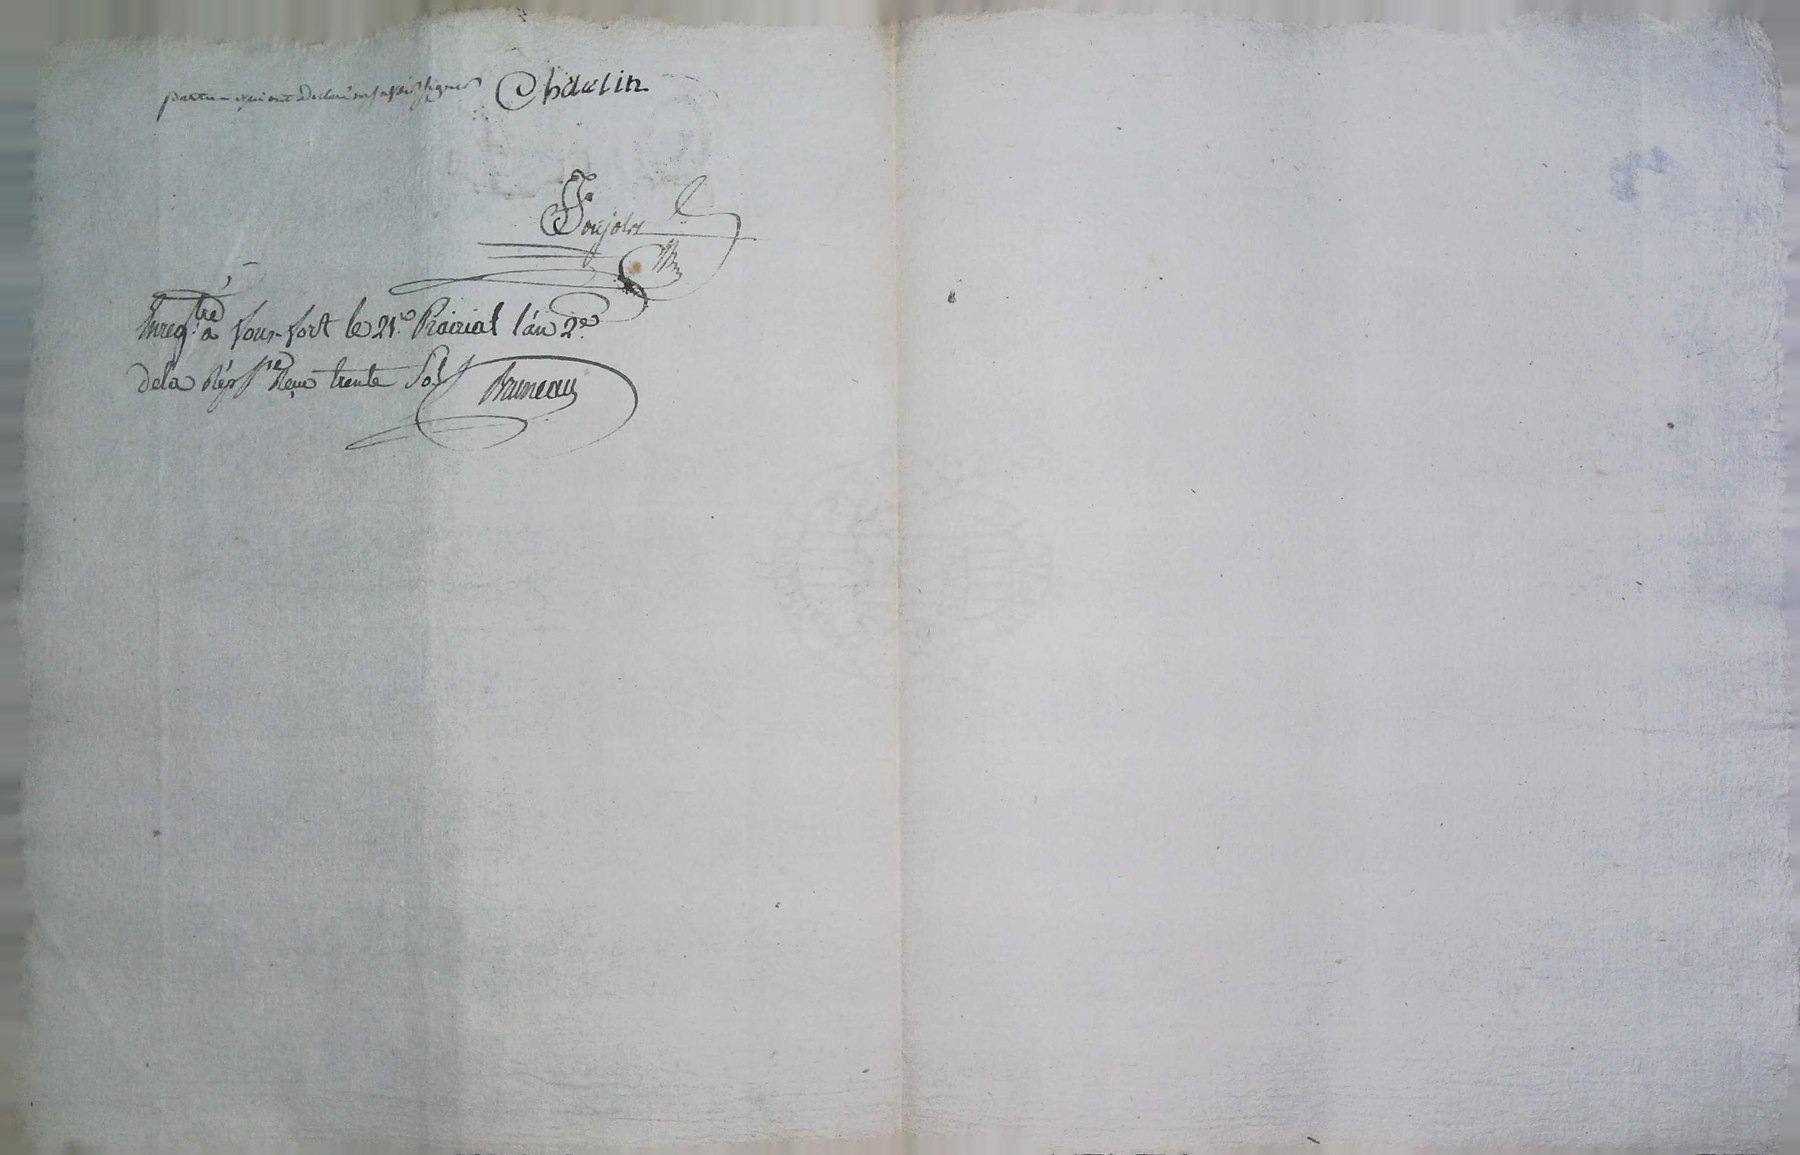 parties qui ont declaré ne savoir signer Chdelin
Soujolos
Enreg.tré à Four-fort le 21.e Prairial l'an 2.e
de la Rép.e Reçu trente Sols Bruneau